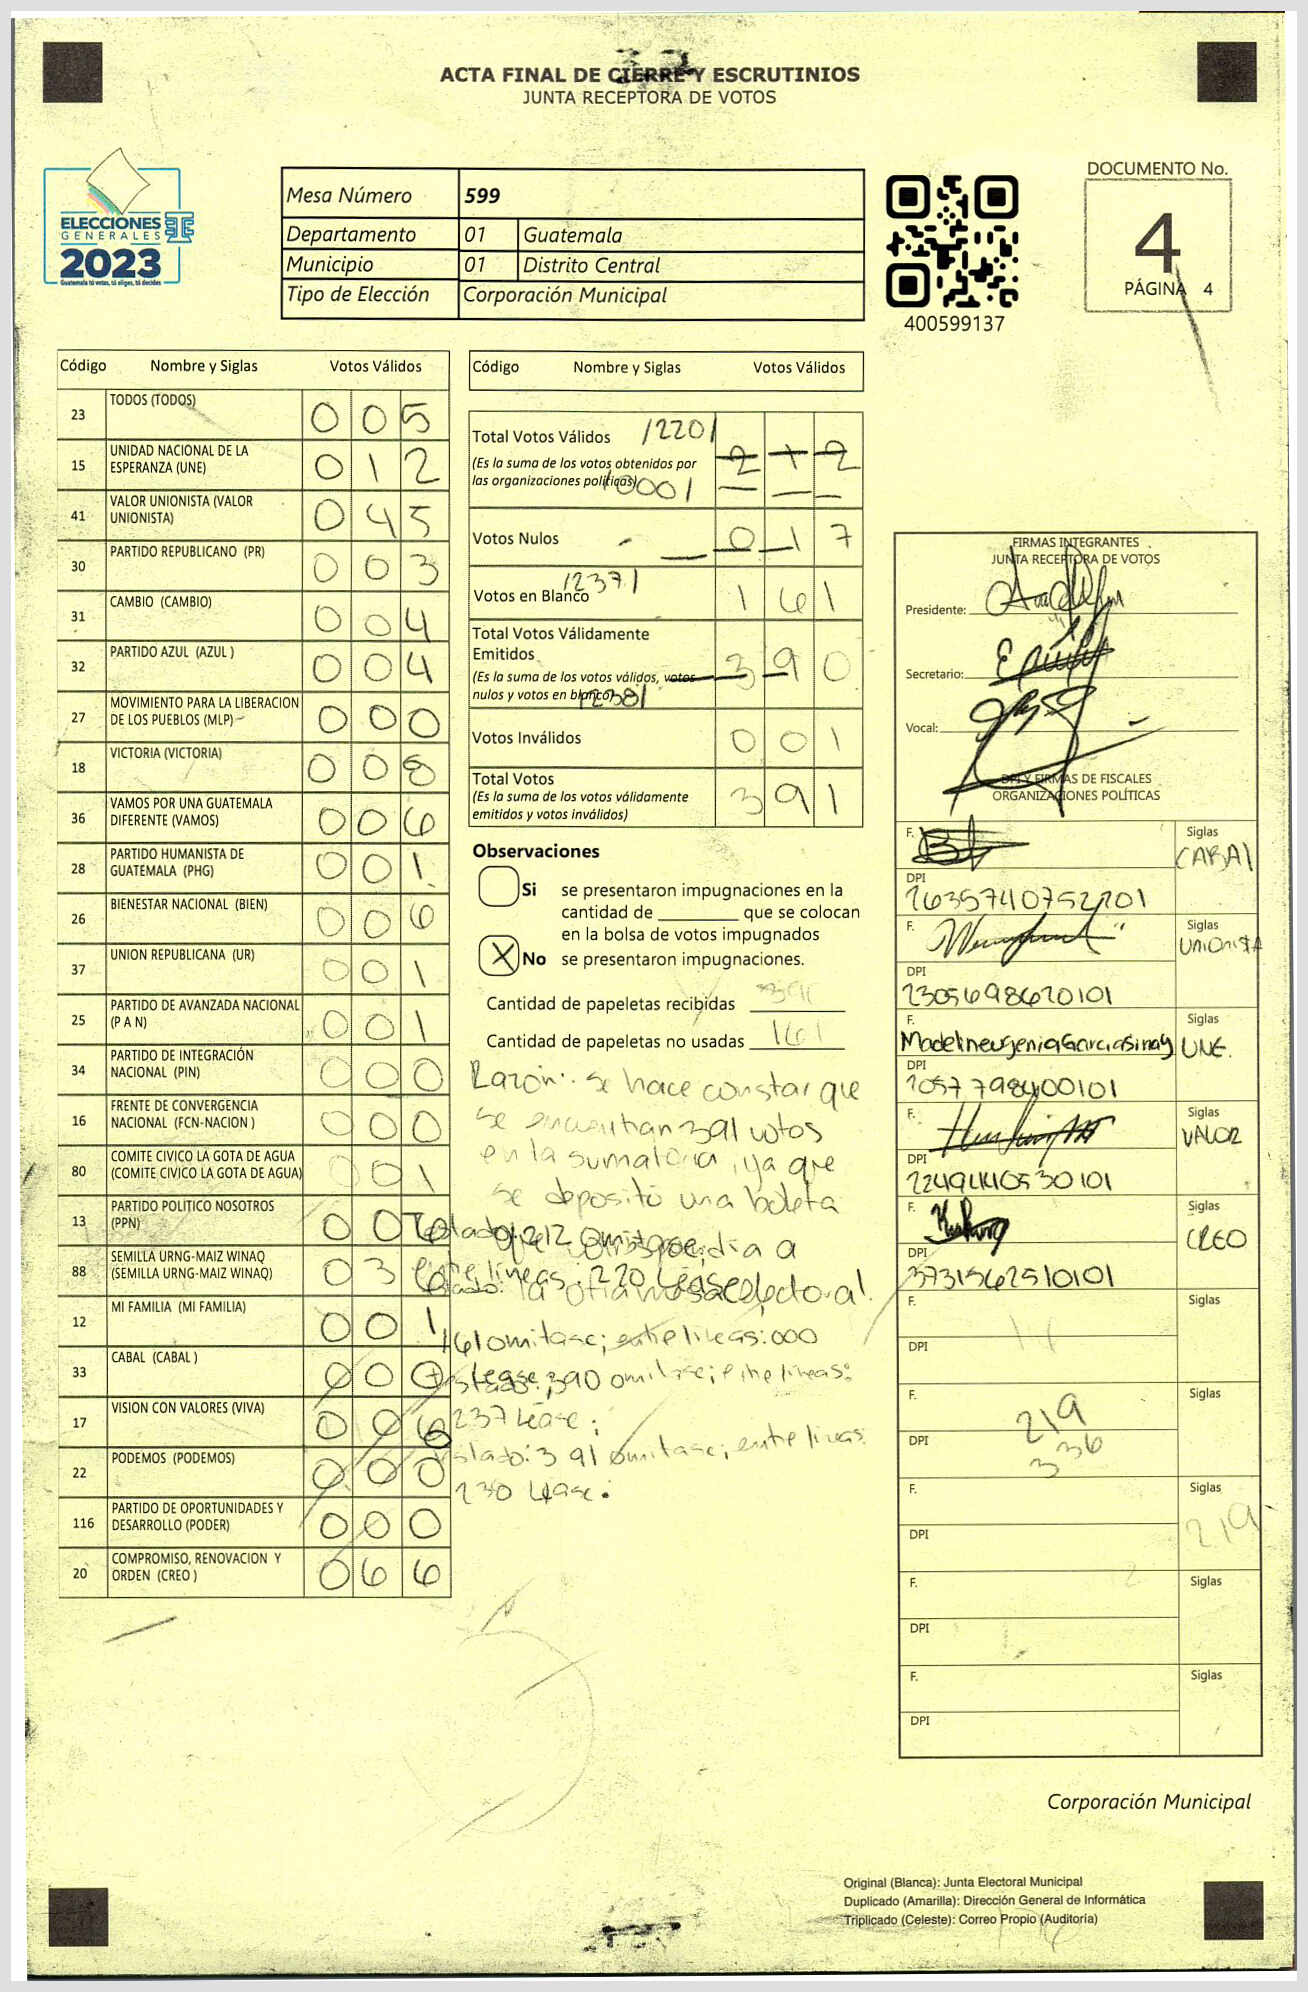 ACTA FINAL DE CIERRE Y ESCRUTINIOS
JUNTA RECEPTORA DE VOTOS
ELECCIONES
GENERALES
2023
Guatemala tú votas, tú eliges, tú decides
Mesa Número 599
Departamento 01 Guatemala
Municipio 01 Distrito Central
Tipo de Elección Corporación Municipal
400599137
DOCUMENTO No.
4
PÁGINA 4
Código Nombre y Siglas Votos Válidos
23 TODOS (TODOS) 0 0 5
15 UNIDAD NACIONAL DE LA ESPERANZA (UNE) 0 1 2
41 VALOR UNIONISTA (VALOR UNIONISTA) 0 4 5
30 PARTIDO REPUBLICANO (PR) 0 0 3
31 CAMBIO (CAMBIO) 0 0 4
32 PARTIDO AZUL (AZUL ) 0 0 4
27 MOVIMIENTO PARA LA LIBERACION DE LOS PUEBLOS (MLP) 0 0 0
18 VICTORIA (VICTORIA) 0 0 8
36 VAMOS POR UNA GUATEMALA DIFERENTE (VAMOS) 0 0 6
28 PARTIDO HUMANISTA DE GUATEMALA (PHG) 0 0 1
26 BIENESTAR NACIONAL (BIEN) 0 0 6
37 UNION REPUBLICANA (UR) 0 0 1
25 PARTIDO DE AVANZADA NACIONAL (P A N) 0 0 1
34 PARTIDO DE INTEGRACIÓN NACIONAL (PIN) 0 0 0
16 FRENTE DE CONVERGENCIA NACIONAL (FCN-NACION ) 0 0 0
80 COMITE CIVICO LA GOTA DE AGUA (COMITE CIVICO LA GOTA DE AGUA) 0 0 1
13 PARTIDO POLÍTICO NOSOTROS (PPN) 0 0
88 SEMILLA URNG-MAIZ WINAQ (SEMILLA URNG-MAIZ WINAQ) 0 3
12 MI FAMILIA (MI FAMILIA) 0 0 1
33 CABAL (CABAL ) 0 0
17 VISION CON VALORES (VIVA) 0 0 6
22 PODEMOS (PODEMOS) 0 0 0
116 PARTIDO DE OPORTUNIDADES Y DESARROLLO (PODER) 0 0 0
20 COMPROMISO, RENOVACION Y ORDEN (CREO ) 0 6 6
Código Nombre y Siglas Votos Válidos
Total Votos Válidos /220/ 2 1 2
(Es la suma de los votos obtenidos por
las organizaciones políticas) /000/
Votos Nulos 0 1 7
Votos en Blanco /237/ 1 6 1
Total Votos Válidamente
Emitidos 3 9 0
(Es la suma de los votos válidos, votos
nulos y votos en blanco) /238/
Votos Inválidos 0 0 1
Total Votos 3 9 1
(Es la suma de los votos válidamente
emitidos y votos inválidos)
Observaciones
Si se presentaron impugnaciones en la
cantidad de ________ que se colocan
en la bolsa de votos impugnados
X No se presentaron impugnaciones.
Cantidad de papeletas recibidas
Cantidad de papeletas no usadas 161
Razón: se hace constar que
se encuentran 391 votos
en la sumatoria, ya que
se depositó una boleta
Testado: 212 omitase;
que correspondia a
entre lineas: 220 Léase;
la otra mesa electoral.
161 omitase; entre lineas: 000
Lease;
testado: 390 omitase; entre lineas:
237 Léase;
testado: 391 omitase; entre lineas:
230 Léase.
FIRMAS INTEGRANTES
JUNTA RECEPTORA DE VOTOS
Presidente:
Secretario:
Vocal:
DPI Y FIRMAS DE FISCALES
ORGANIZACIONES POLÍTICAS
F. Siglas CABAL
DPI 2635740752201
F. Siglas UNIONISTA
DPI 2305698620101
F. Madelineugenia Garcia Sinay Siglas UNE.
DPI 2057798400101
F. Siglas VALOR
DPI 2249440530101
F. Siglas CREO
DPI 3731562510101
F. Siglas
DPI
F. 219 Siglas
DPI 336
F. Siglas 219
DPI
F. Siglas
DPI
F. Siglas
DPI
Corporación Municipal
Original (Blanca): Junta Electoral Municipal
Duplicado (Amarilla): Dirección General de Informática
Triplicado (Celeste): Correo Propio (Auditoría)